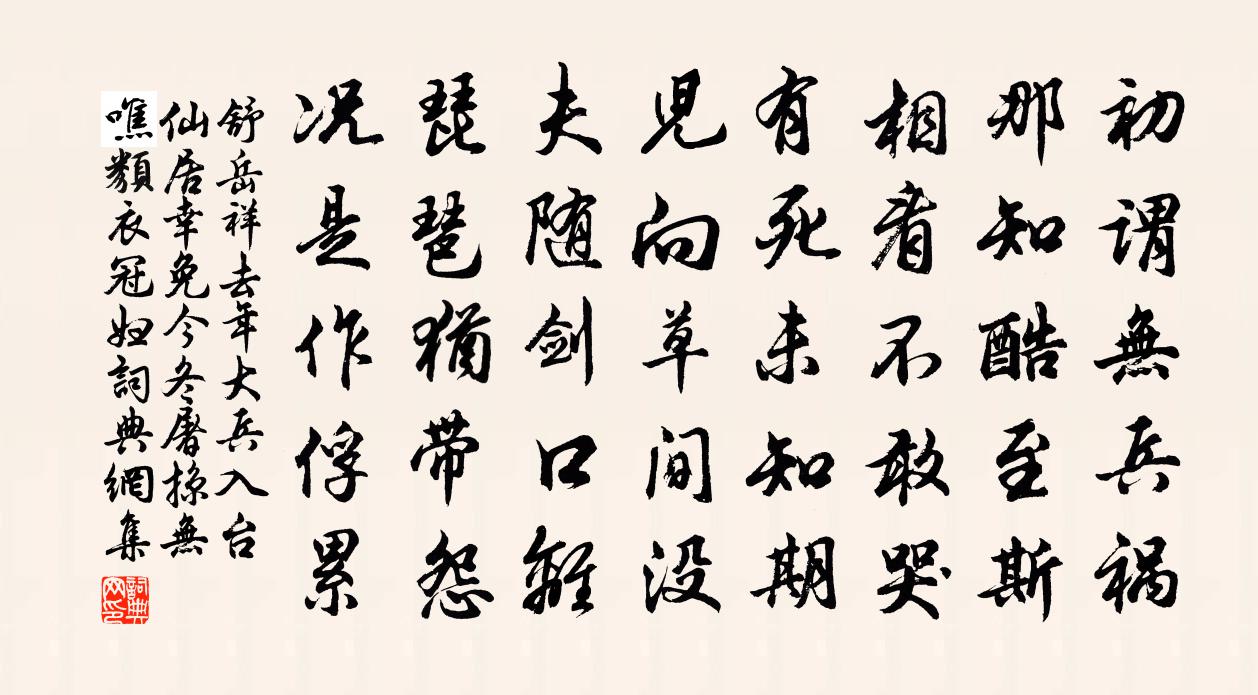 初謂無兵祸
那知酷至斯
相看不敢哭
有死未知期
児向草間没
夫随剑口離
琵琶猶带怨
况是作俘累
舒岳祥去年大兵入台
仙居幸免今冬屠掠無
噍類衣冠妇詞典網集